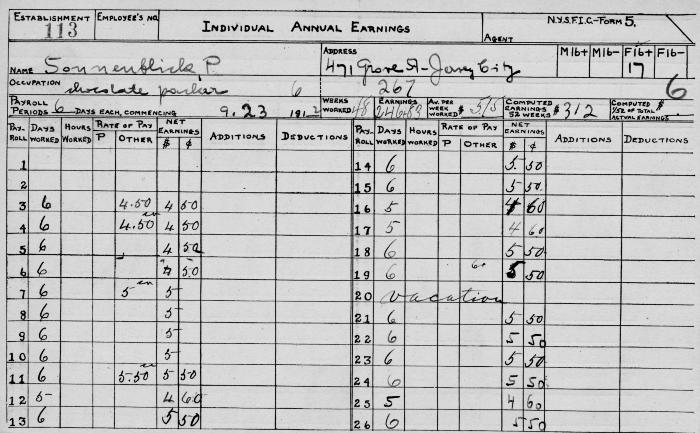 ESTABLISHMENT 113 EMPLOYEE'S NO. INDIVIDUAL ANNUAL EARNINGS N.Y.S.F.I.C.-FORM 5.
AGENT
NAME Sonnenblick, P. ADDRESS 471 Grove St - Jersey City M16+ M16- F16+ 17 F16-
OCCUPATION chocolate packer 6 267 6
PAYROLL PERIODS 6 DAYS EACH, COMMENCING 9.23 1912 WEEKS WORKED 48 EARNINGS AV. PER WEEK WORKED $ COMPUTED EARNINGS 52 WEEKS $312 COMPUTED $ 1/52 OF TOTAL ACTUAL EARNINGS
PAY-ROLL DAYS WORKED HOURS WORKED RATE OF PAY P OTHER NET EARNINGS $ ¢ ADDITIONS DEDUCTIONS PAY-ROLL DAYS WORKED HOURS WORKED RATE OF PAY P OTHER NET EARNINGS $ ¢ ADDITIONS DEDUCTIONS
1 14 6 5 50
2 15 6 5 50
3 6 4.50 4 50 16 5 4 60
4 6 4.50 4 50 17 5 4 60
5 6 4 50 18 6 5 50
6 6 4 50 19 6 5 50
7 6 5 5 20 vacation
8 6 5 21 6 5 50
9 6 5 22 6 5 50
10 6 5 23 6 5 50
11 6 5.50 5 50 24 6 5 50
12 5 4 60 25 5 4 60
13 6 5 50 26 6 5 50